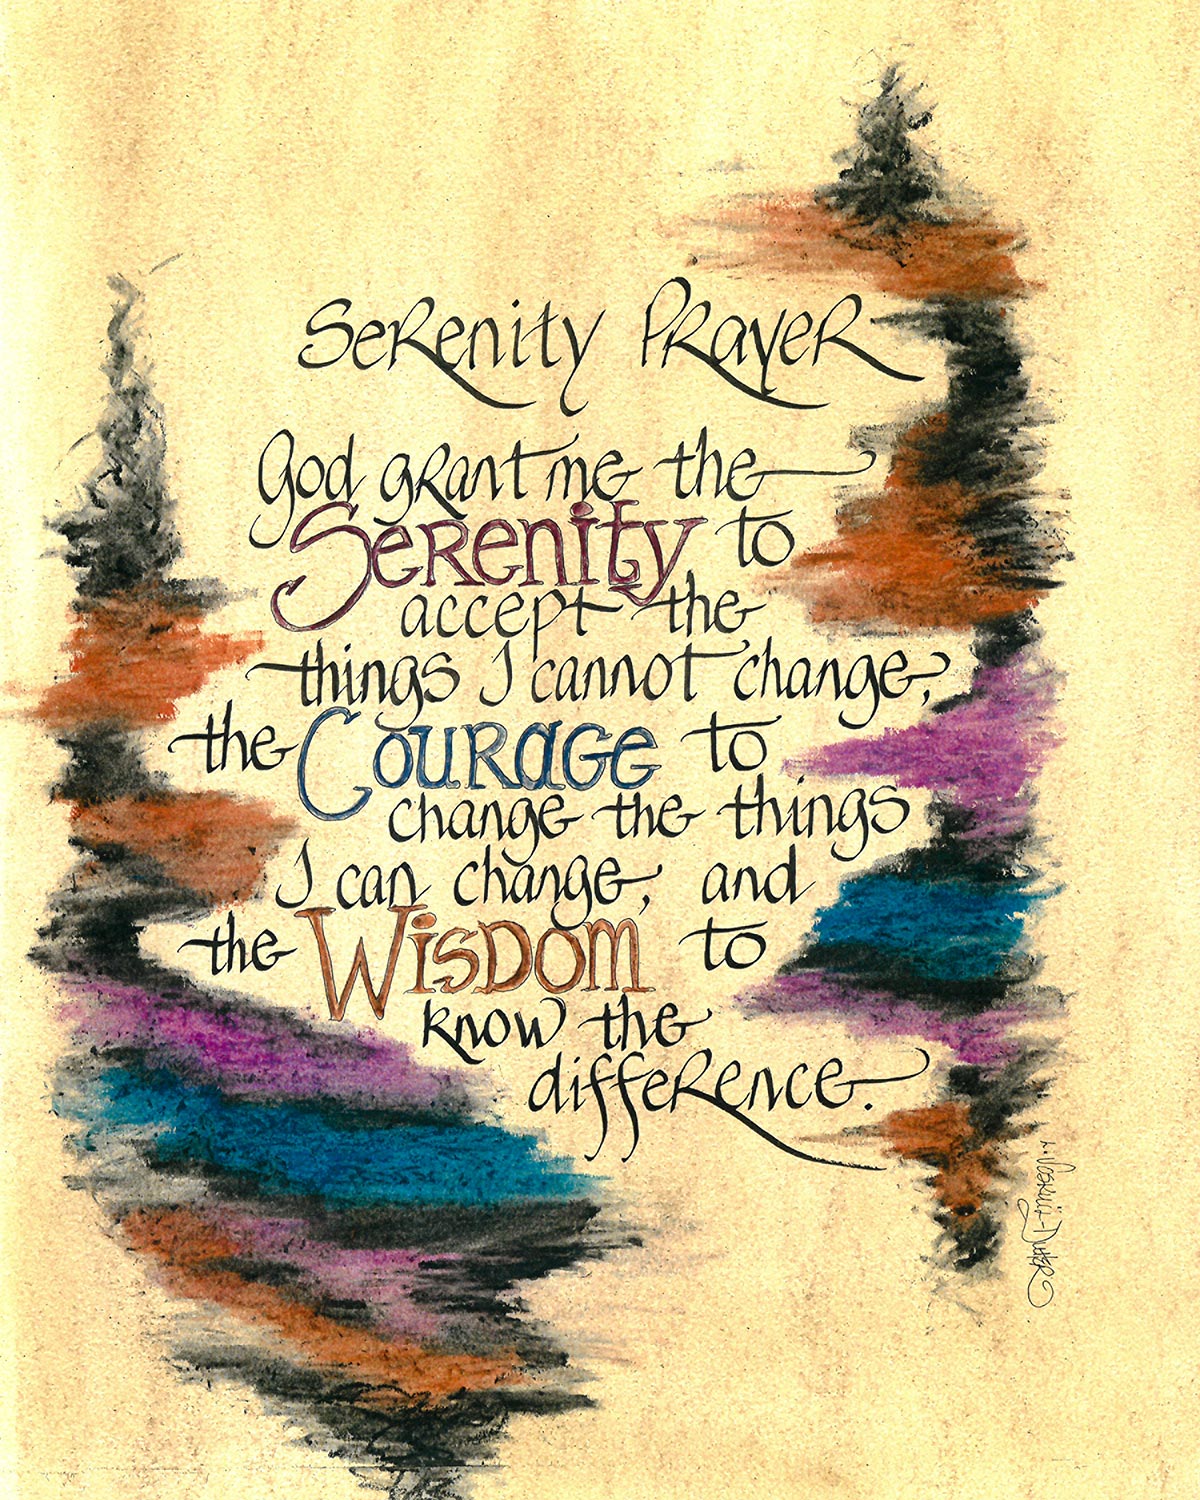 Serenity Prayer
God grant me the
Serenity to
accept the
things I cannot change,
the Courage to
change the things
I can change, and
the Wisdom to
know the
difference.